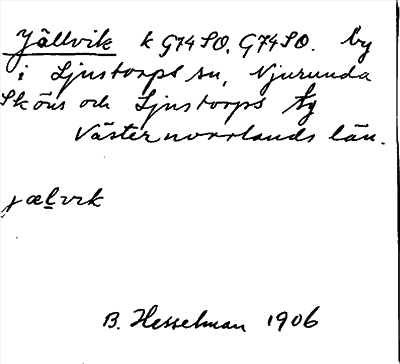 Jällvik k G74SO, G74SO. by
i Ljustorps sn, Njurunda
Sköns och Ljustorps tg
Västernorrlands län.
jælvık
B. Hesselman 1906